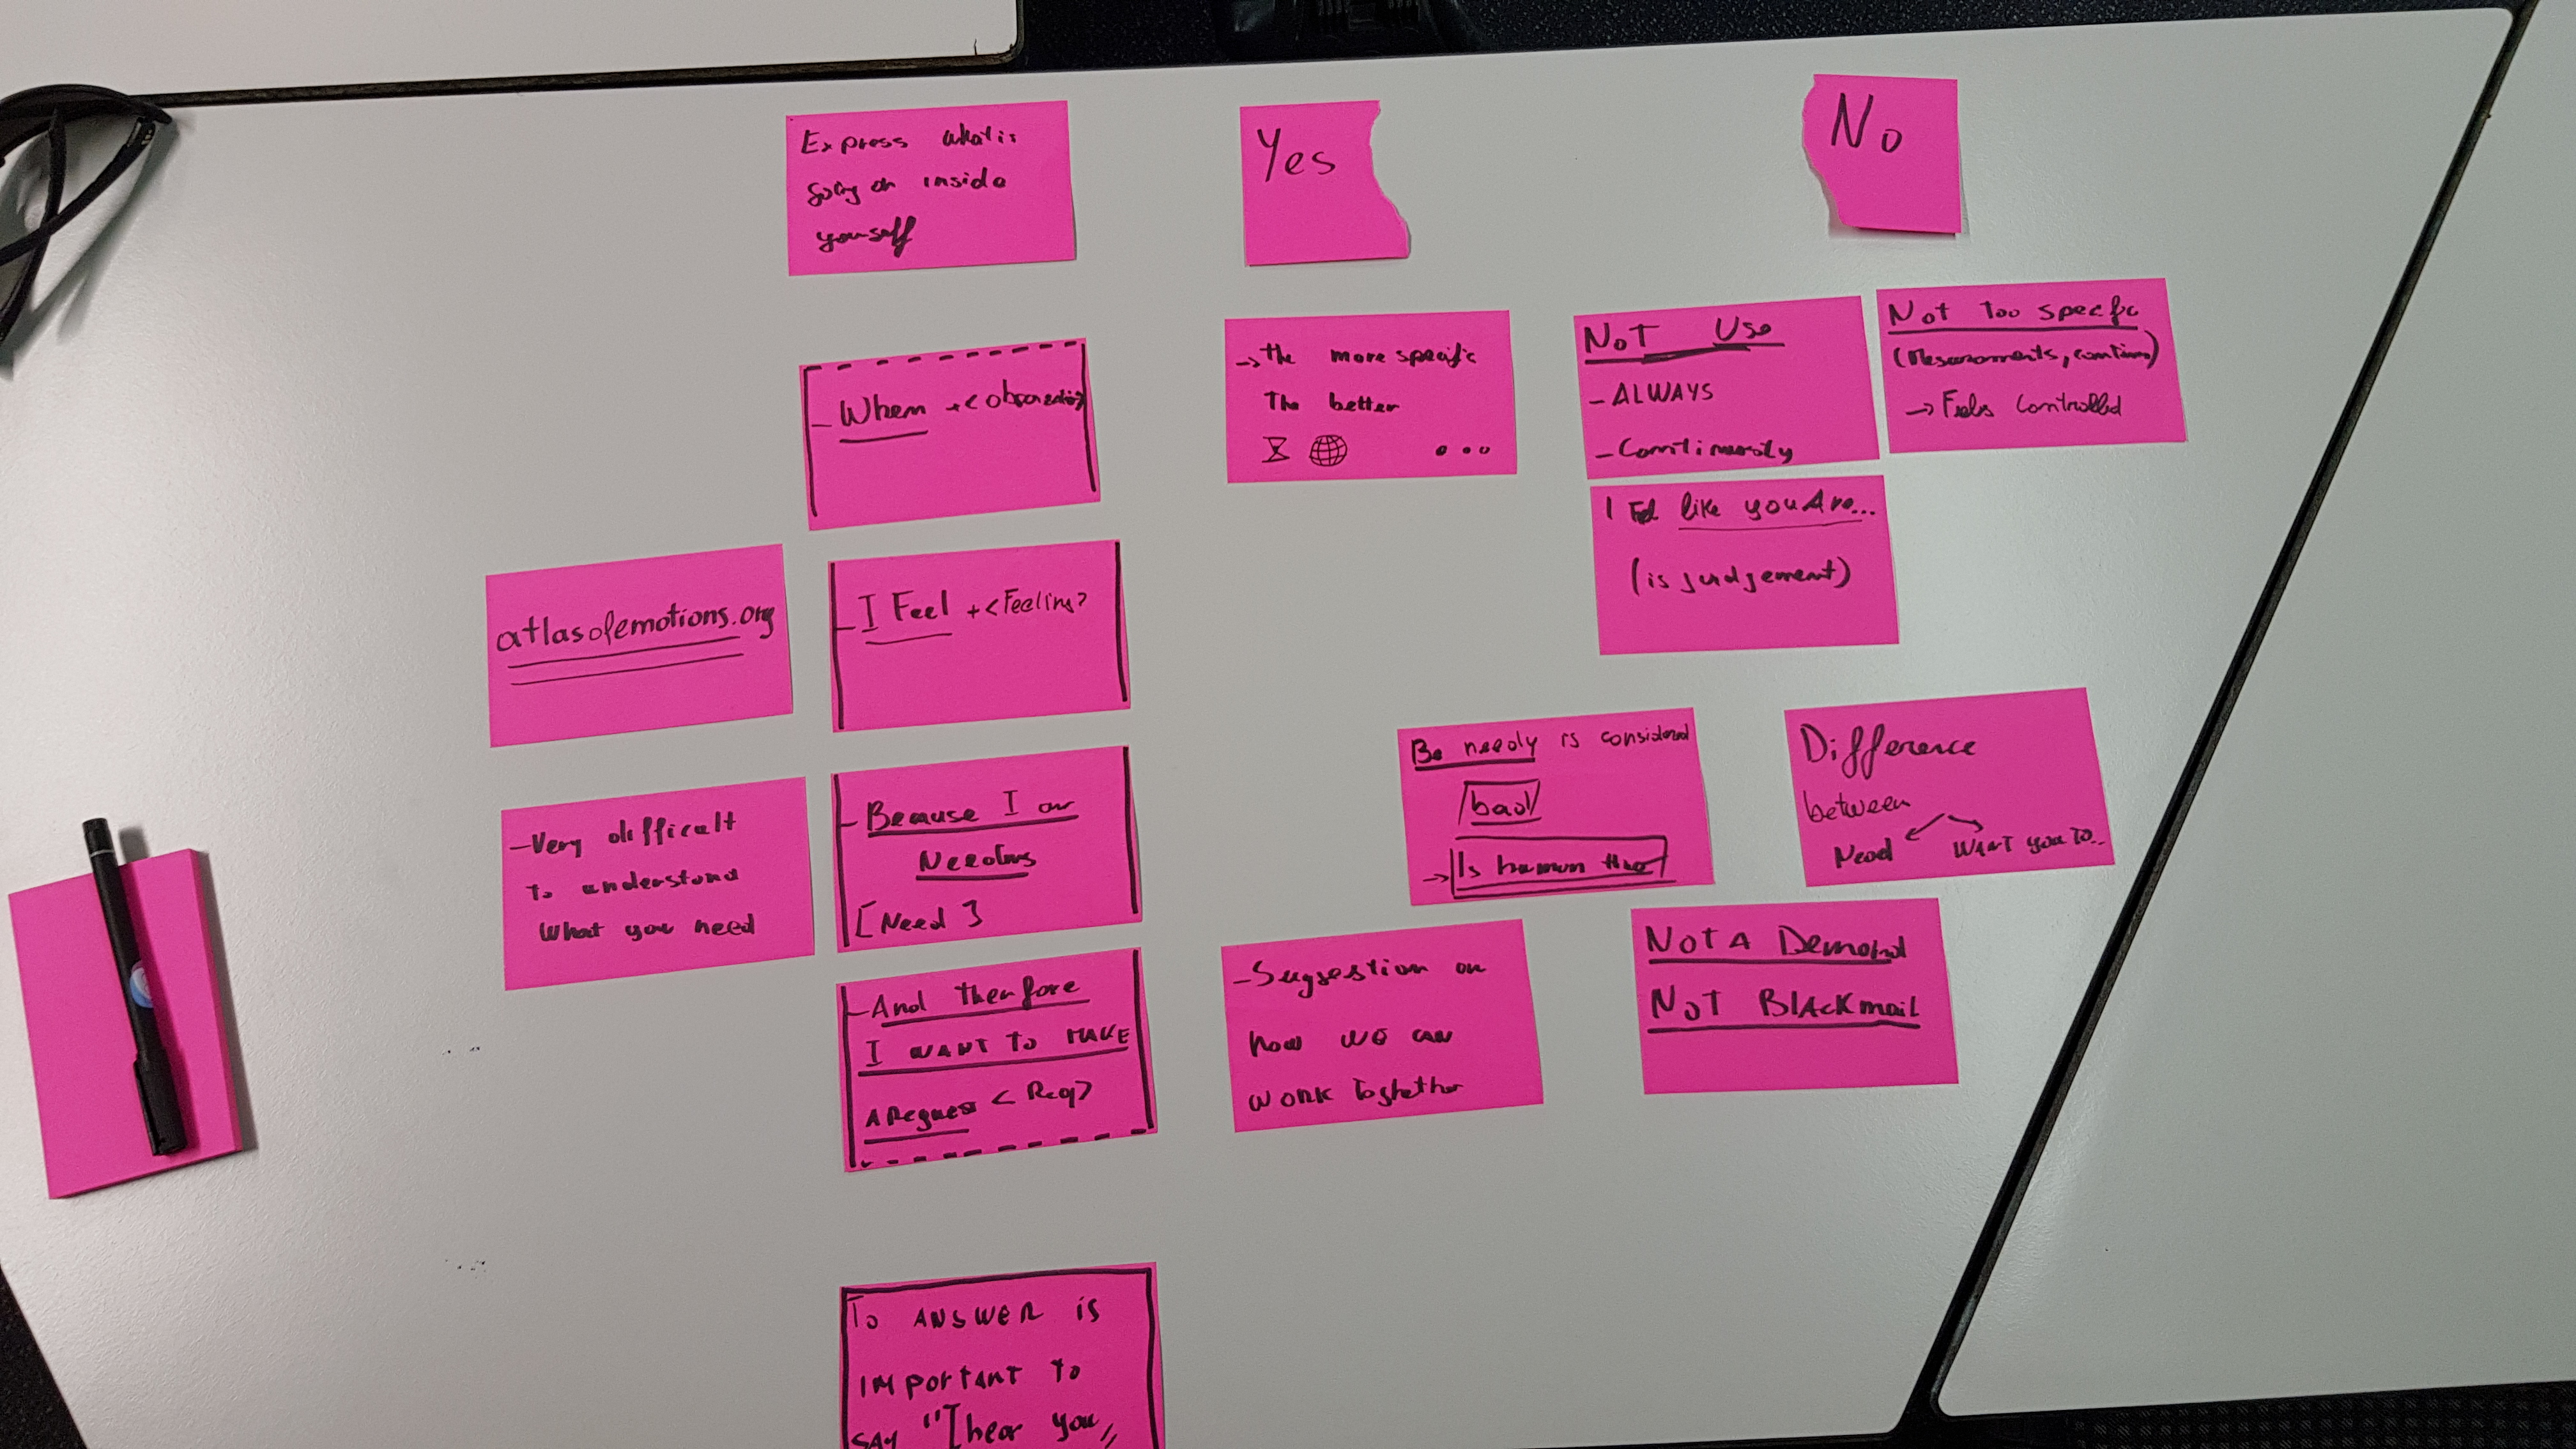 Express what is
going on inside
yourself
Yes
No
- When + <observation>
→ the more specific
The better
...
NOT Use
- ALWAYS
- Continuosly
Not Too specific
(Mesurements,
→ Feels Controlled
I Feel like you Are...
(is judgement)
atlasofemotions.org
- I Feel + <Feeling>
- Very difficult
To understand
What you need
- Because I am
Needing
[Need]
Be needy is considered
bad
→ Is human
Difference
between
Need WANT you To..
- And therefore
I WANT TO MAKE
A Request <Req>
- Suggestion on
how we can
work Toghether
NOT A Demand
NOT BlAckmail
To ANSWER is
IMportant to
SAY "I hear you"